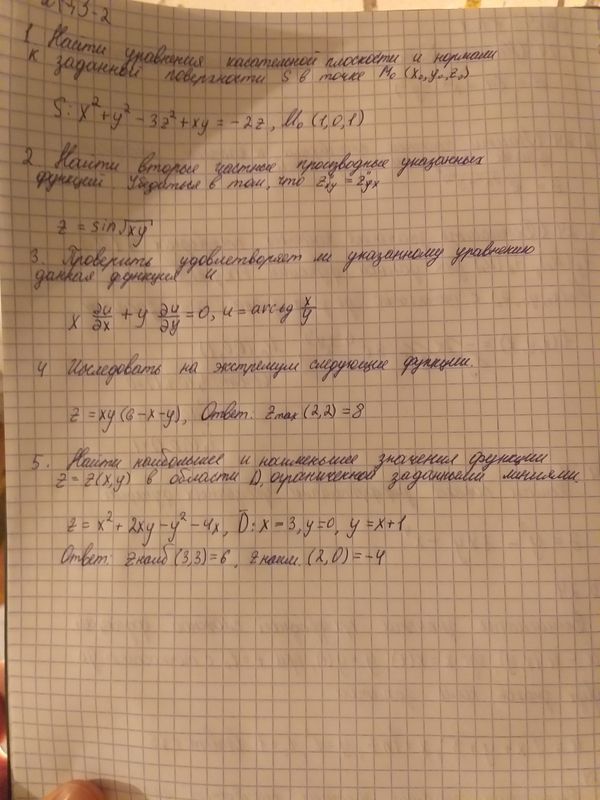 1 Найти уравнения касательной плоскости и нормали
к заданной поверхности S в точке M₀ (x₀, y₀, z₀)
S: x² + y² - 3z² + xy = -2z, M₀ (1, 0, 1)
2 Найти вторые частные производные указанных
функций. Убедиться в том, что z"xy = z"yx
z = sin√xy
3. Проверить удовлетворяет ли указанному уравнению
данная функция u
x ∂u/∂x + y ∂u/∂y = 0, u = arcctg x/y
4 Исследовать на экстремум следующие функции.
z = xy (6-x-y), Ответ: zmax (2,2) = 8
5. Найти наибольшее и наименьшее значения функции
z = z(x,y) в области D, ограниченной заданными линиями.
z = x² + 2xy - y² - 4x, D̄: x = 3, y = 0, y = x+1
Ответ: zнаиб (3,3) = 6, zнаим. (2,0) = -4